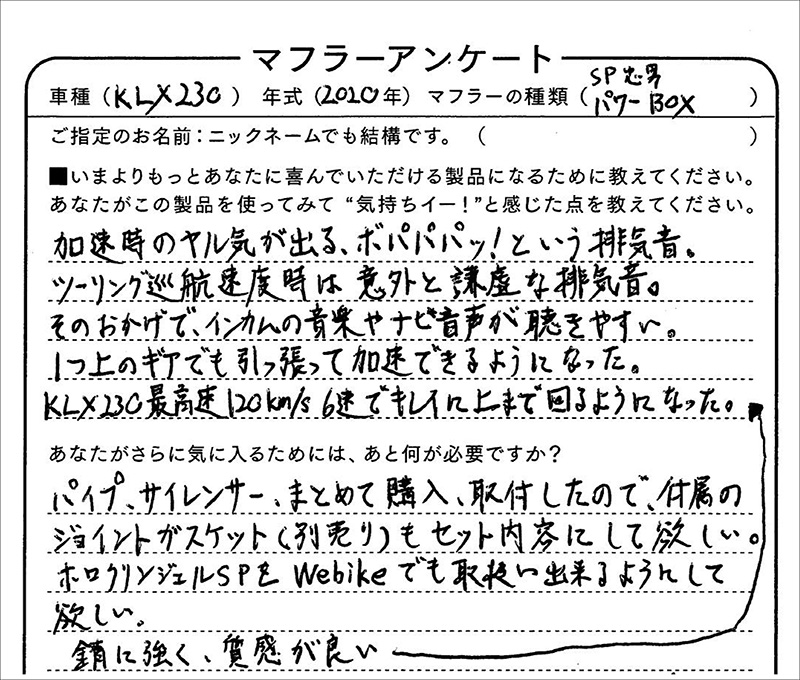 マフラーアンケート
車種（KLX230）　年式（2020年）　マフラーの種類（SP忠男 パワーBOX）
ご指定のお名前：ニックネームでも結構です。（　　　）
■いまよりもっとあなたに喜んでいただける製品になるために教えてください。
あなたがこの製品を使ってみて“気持ちイー！”と感じた点を教えてください。
加速時のヤル気が出る、ボパパパッ！という排気音。
ツーリング巡航速度時は意外と謙虚な排気音。
そのおかげで、インカムの音楽やナビ音声が聴きやすい。
1つ上のギアでも引っ張って加速できるようになった。
KLX230最高速120km/s 6速でキレイに上まで回るようになった。
あなたがさらに気に入るためには、あと何が必要ですか？
パイプ、サイレンサー、まとめて購入、取付したので、付属の
ジョイントガスケット（別売り）もセット内容にして欲しい。
ホロクリンジェルSPをWebikeでも取扱い出来るようにして
欲しい。
錆に強く、質感が良い